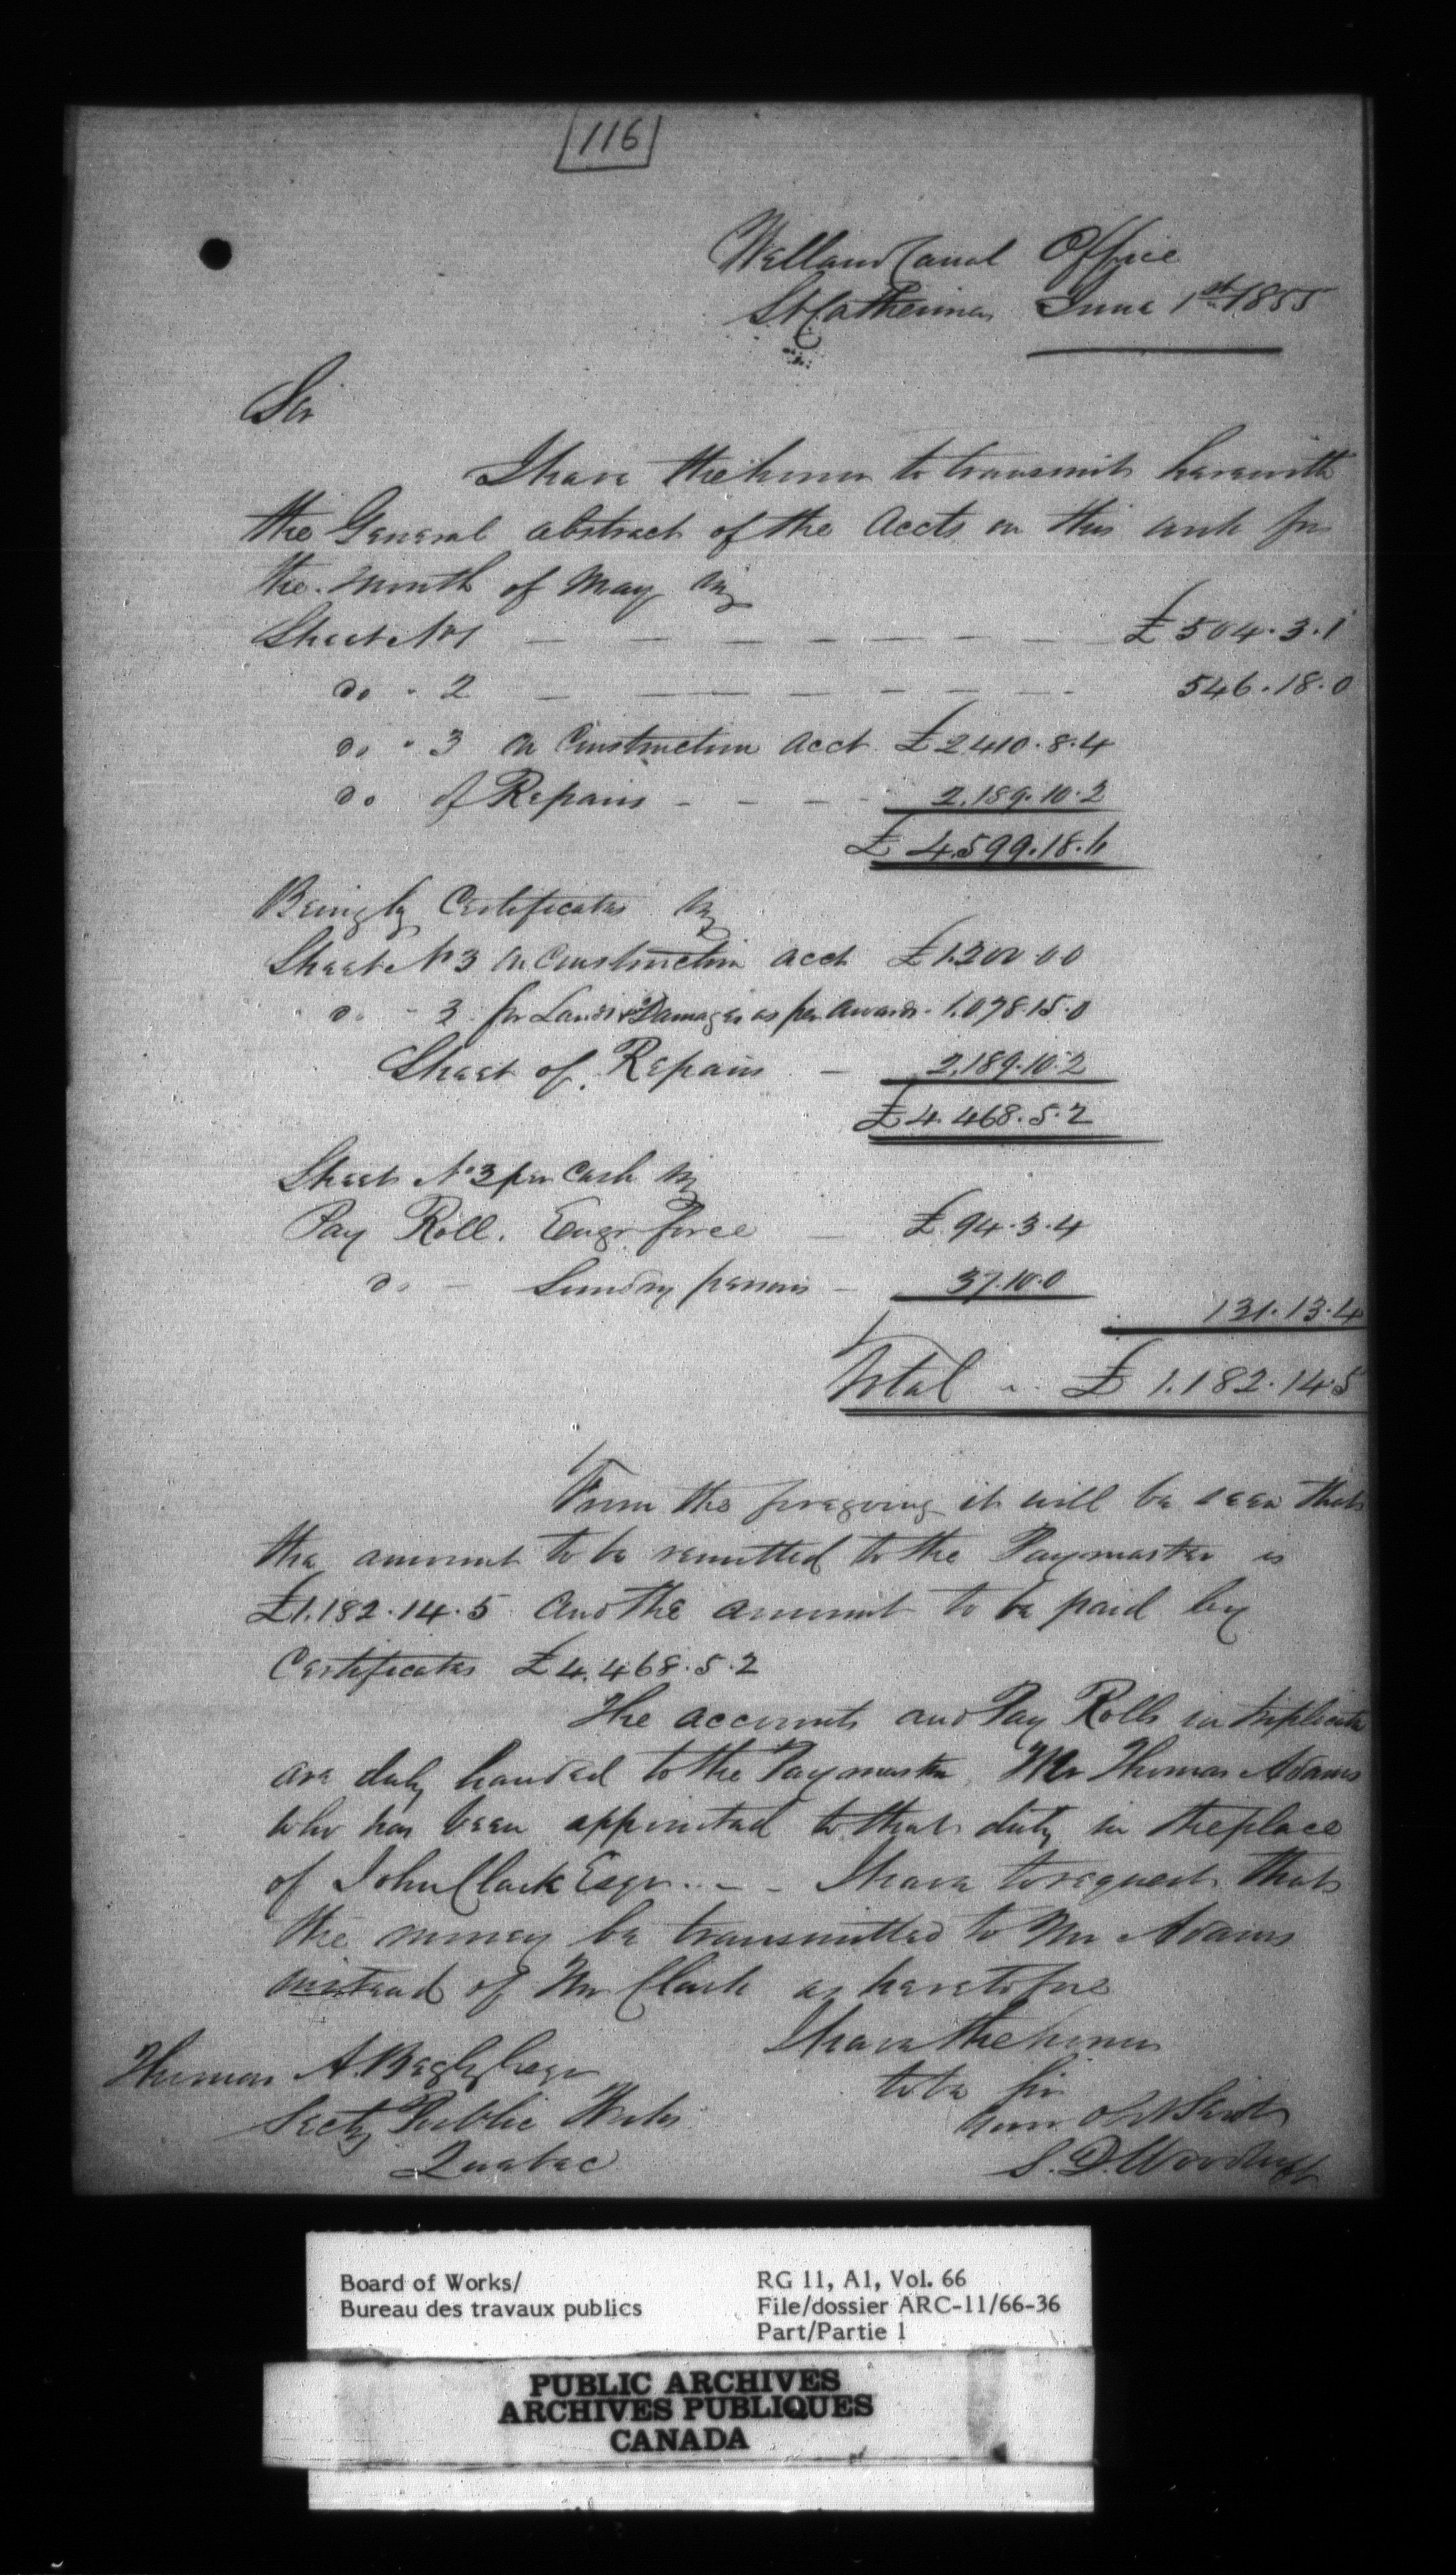 116
Welland Canal Office
St Catherines June 1st 1855
Sir
I have the honor to transmit herewith
the General abstract of the Accts on this work for
the month of May viz
Sheet No 1 — — — — — — — £ 504.3.1
do " 2 — — — — — — — 546.18.0
do " 3 on Construction acct £ 2410.8.4
do of Repairs - - - - 2.189.10.2
£ 4.599.18.6
Being by Certificates viz
Sheet No 3 on Construction acct £ 1.200.0.0
do " 3 for Lands & Damages as per award - 1.078.15.0
Sheet of Repairs — 2.189.10.2
£ 4.468.5.2
Sheet No 3 per Cash viz
Pay Roll. Engr force — £ 94.3.4
do - Sundry persons - 37.10.0
131.13.4
Total " £ 1.182.14.5
From the foregoing it will be seen that
the amount to be remitted to the Paymaster is
£1.182.14.5 and the amount to be paid by
Certificates £ 4.468.5.2
The accounts and Pay Rolls in triplicate
are duly handed to the Paymaster, Mr Thomas Adams
who has been appointed to that duty in the place
of John Clark Esqr.. - - I have to request that
the money be transmitted to Mr Adams
instead of Mr Clark as heretofore
I have the honor
to be Sir
Your Obt Servt
S. D. Woodruff
Thomas A. Begly Esqr
Secty Public Works
Quebec
Board of Works/
Bureau des travaux publics
RG 11, A1, Vol. 66
File/dossier ARC-11/66-36
Part/Partie 1
PUBLIC ARCHIVES
ARCHIVES PUBLIQUES
CANADA